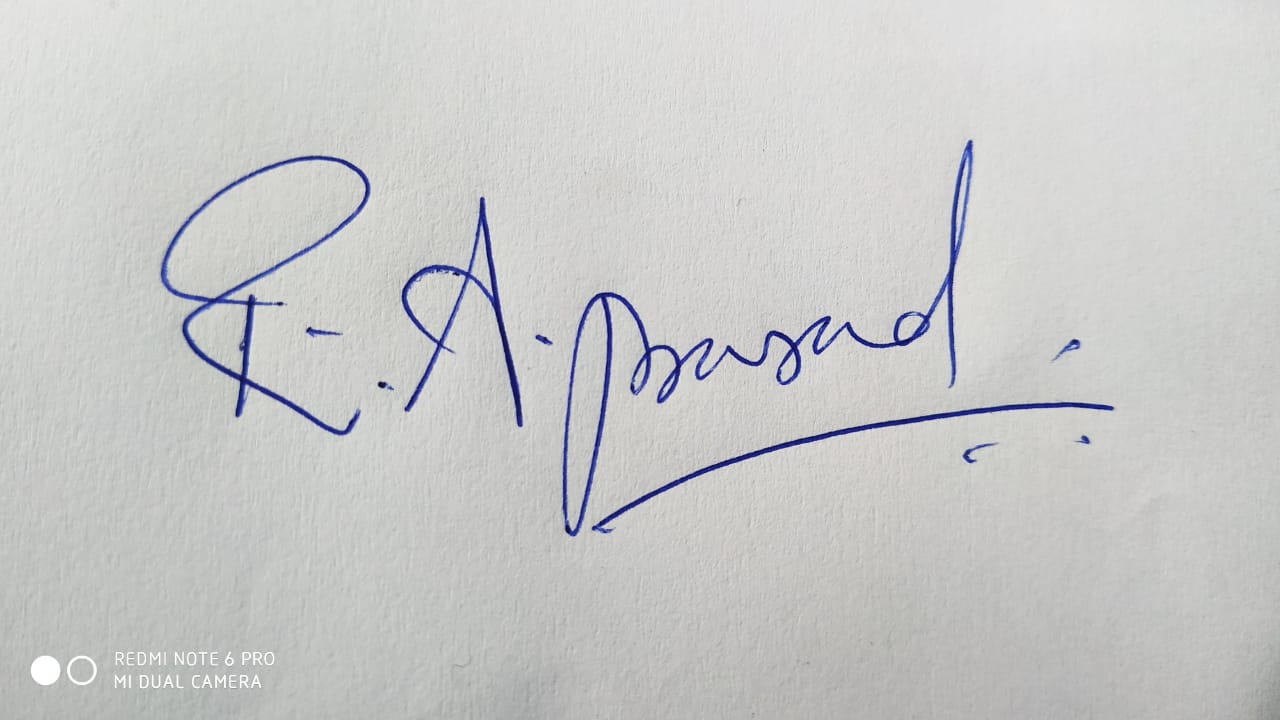 R. A. prasad
REDMI NOTE 6 PRO
MI DUAL CAMERA